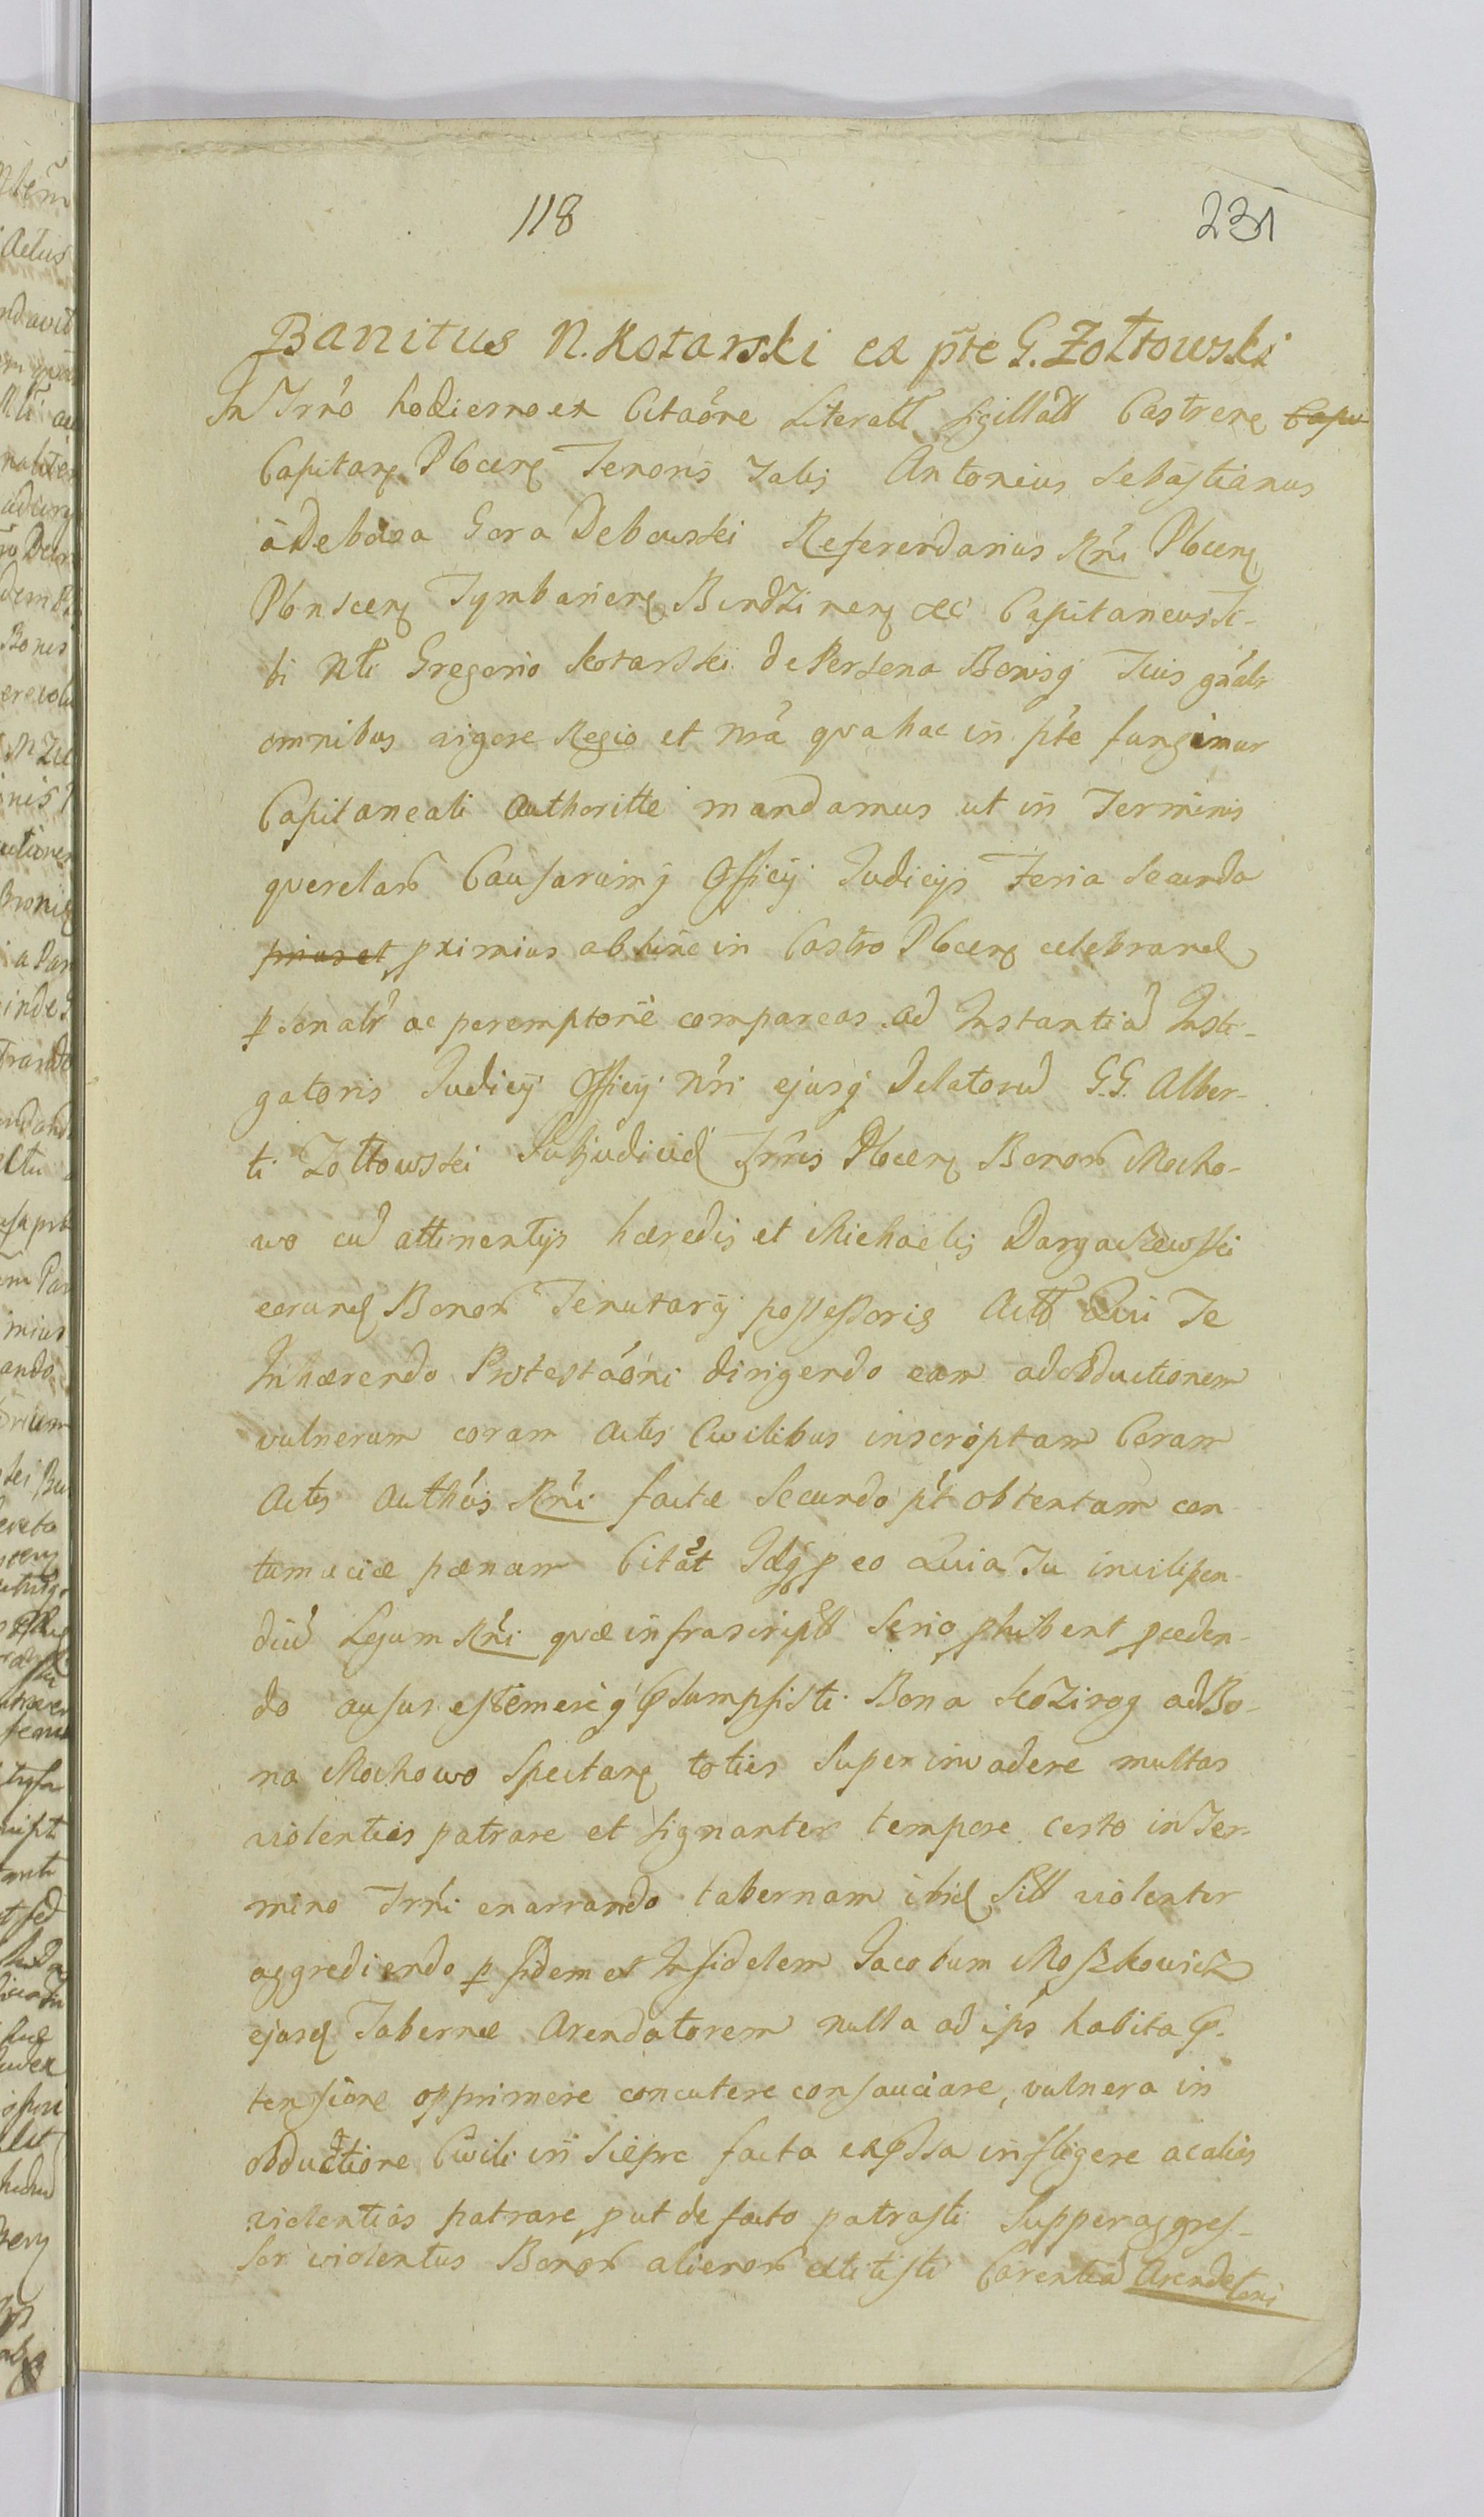 118
231
Banitus N. Kotarski ex pte G. Zołtowski
In Trno hodierno ex Citaõne Literali Sigillali Castren Capi
Capitan Płocen Tenoris Talis Antonius Sebastianus
à Debowa Gora Debowski Referendarius Rni Płocen
Płonscen Tymbarien Birdzinen &c Capitaneus Ti-
bi Nli Gregorio Kotarski de Persona Bonisq Tuis gnalr
omnibus vigore Regio et nra qva hac in pte fungimur
Capitaneali Authoritte mandamus ut in Terminis
qverelar Causarumq Officij Judicijs Feria Secunda
prius et pximius abhinc in Castro Płocen celebrand
psonalr ac peremptorie compareas ad Instantiã Insti-
gatoris Judicij Officij nri ejusq Delatorũ G.G. Alber-
ti Zołtowski Subjudicis Trris Płocen Bonor Mocho-
wo cũ attinentijs hæredis et Michaelis Dargaczewski
eorund Bonor Tenutarij possessoris Act Qui Te
Inhærendo Protestaõni dirigendo eam ad obductionem
vulnerum coram Actis Civilibus inscriptam Coram
Actis Authcis Rni factæ Secundo pt obtentam con-
tumaciæ pænam Citãt Idq p eo Quia Tu invilipen-
diũ Legum Rni qvæ infrascripta Serio phibent pceden-
do ausus es temereq psumpsisti Bona Kozirog ad Bo-
na Mochowo Spectan toties Superinvadere multas
violentias patrare et signanter tempore certo in Ter-
mino Trni enarrando tabernam ibid Sitt violenter
aggrediendo p fidem et Infidelem Jacobum Moszkowicz
ejusd Tabernæ Arendatorem nulla ad ips habita p-
tensione opprimere concutere consauciare, vulnera in
obductione Civili in Sierpc facta expssa infligere ac alias
violentias patrare put de facto patrasti Supperaggres-
sor violentus Bonor alienor extitisti Carentiã Arendatoris